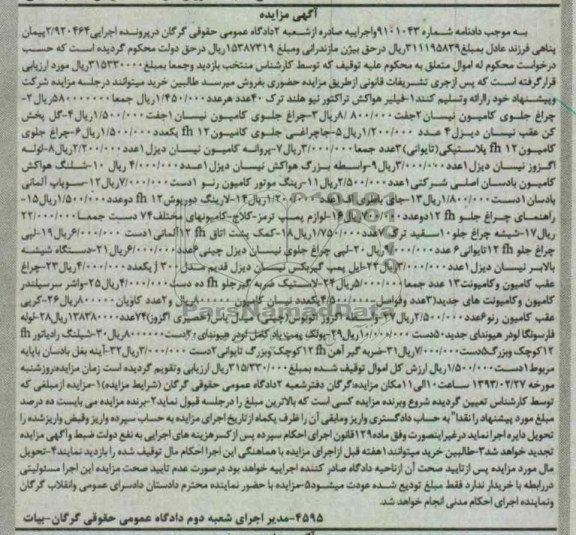 آگهی مزایده
به موجب دادنامه شماره ۹۱۰۱۰۴۳ واجراییه صادره ازشعبه ۲دادگاه عمومی حقوقی گرگان درپرونده اجرایی۲/۹۲۰۴۶۴پیمان
پناهی فرزند عادل بمبلغ۳۱۱۱۹۵۸۳۹ریال درحق بیژن مازندرانی ومبلغ ۱۵۳۸۷۳۱۹ریال درحق دولت محکوم گردیده است که حسب
درخواست محکوم له اموال متعلق به محکوم علیه توقیف که توسط کارشناس منتخب بازدید وجمعا بمبلغ۳۱۵۳۳۰۰۰۰ریال مورد ارزیابی
قرارگرفته است که پس ازجری تشریفات قانونی ازطریق مزایده حضوری بفروش میرسد طالبین خرید میتوانند درجلسه مزایده شرکت
وپیشنهاد خود راارائه وتسلیم کنند۱-فیلیر هواکش تراکتور نیو هلند ترک ۴۰عدد هرعدد۱/۴۵۰/۰۰۰ریال جمعا ۵۸۰۰۰۰۰۰ریال ۲-
چراغ جلوی کامیون نیسان ۲جفت۸/۸۰۰/۰۰۰ریال۳-چراغ جلوی کامیون نیسان ۱جفت ۱/۵۰۰/۰۰۰ریال۴-گل پخش
کن عقب نیسان دیزل۴ عدد ۱/۲۰۰/۰۰۰ریال۵-جاچراغی جلوی کامیون fh ۱۲ یکعدد ۱/۵۰۰/۰۰۰ریال۶-چراغ جلوی
کامیون۱۲ fh پلاستیکی(تایوانی)۳عدد جمعا۳/۰۰۰/۰۰۰ریال۷-پروانه کامیون نیسان دیزل۱عدد ۲/۲۰۰/۰۰۰ریال۸-لوله
اگزوز نیسان دیزل۱عدد ۳/۰۰۰/۰۰۰ریال۹-واسطه بزرگ هواکش نیسان دیزل ۱عدد ۴/۰۰۰/۰۰۰ ریال ۱۰-شلنگ هواکش
کامیون بادسان اصلی شرکتی ۱عدد ۲/۵۰۰/۰۰۰ریال۱۱-رینگ موتور کامیون رنو ۱دست ۷/۰۰۰/۰۰۰ریال۱۲-سوپاپ آلمانی
بادسان ۱دست ۱/۸۰۰/۰۰۰ریال۱۳-جای باطری اف۱عدد ۱/۲۰۰/۰۰۰ریال۱۴-لاریتگ دورپوش fh ۱۲ دوعدد ۱/۵۰۰/۰۰۰ریال۱۵-
راهنمای چراغ جلو fh ۱۲دوعدد ۷۰۰/۰۰۰ریال۱۶-لوازم پمپ ترمز-کلاچ-کامیونهای مختلف۷۴ دست جمعا ۲۲/۰۰۰/۰۰۰
ریال۱۷-شیشه چراغ جلو ۱۰سفید ترک ۷عدد ۱/۷۵۰/۰۰۰ریال۱۸-کمک پشت اتاق fh ۱۲آلمانی ۱دست ۶/۰۰۰/۰۰۰ریال۱۹-لپی
چراغ جلو fh ۱۲تایوانی۶ عدد ۹/۰۰۰/۰۰۰ریال ۲۰-لپی چراغ جلوی نیسان دیزل چینی۶عدد ۶/۰۰۰/۰۰۰ریال۲۱-دستگاه شیشه
بالابر نیسان دیزل۱عدد ۳/۰۰۰/۰۰۰ریال۲۲-اپل پمپ گیربکس نیسان دیزل قدیم مدل ۳۰ ژیکعدد ۴/۰۰۰/۰۰۰ریال۲۳-چراغ
عقب کامیون وکامیونت ۱۳ عدد جمعا ۵/۰۰۰/۰۰۰ریال۲۴-لاستیک ضربه گیرجلو fh ده دست ۴/۰۰۰/۰۰۰ریال۲۵-واشر سرسیلندر
کامیون وکامیونت های جدید(۳عدد وفواصل ۴/۵۰۰/۰۰۰یکعدد نیان کامیون ۸۰۰۰۰۰۰ریال و۲عدد کاویان ۸۰۰۰۰۰ریال۲۶-کربی
عقب کامیون رنو۶عدد ۲/۵۰۰/۰۰۰ریال۲۷-
فارسونگا لودر هیوندای جدید۵۰دست ۱۰/۰۰۰/۰۰۰ریال۲۹-پولک پمپ باد کامل لودر هیوندای ۲۰دست ۸۰۰۰۰۰۰ریال۳۰-شیلنگ رادیاتور fh
۱۲کوچک وبزرگ۵دست ۷/۰۰۰/۰۰۰ریال۳۱-ضربه گیر آهن fh ۱۲کوچک وبزرگ تایوانی ۲دست ۳/۰۰۰/۰۰۰ریال۳۲-آینه بغل بادسان باپایه
مربوط ۱دست ۱/۵۰۰/۰۰۰ریال ارزش کل اموال توقیف شده بمبلغ ۳۱۵/۳۳۰/۰۰۰ریال ارزیابی وتقویم گردیده است زمان مزایده:روزشنبه
مورخه ۱۳۹۳/۰۲/۲۷ ساعت ۱۰الی۱۱ مکان مزایده:گرگان دفترشعبه ۲دادگاه عمومی حقوقی گرگان (شرایط مزایده)۱-مزایده ازمبلغی که
توسط کارشناس تعیین گردیده شروع وبرنده مزایده کسی است که بالاترین مبلغ را درجلسه قبول نماید۲-برنده مزایده می بایست ده درصد
مبلغ مورد پیشنهاد را نقدا" به حساب دادگستری واریز ومابقی آن را ظرف یکماه ازتاریخ اجرای مزایده به حساب سپرده واریز وقبض واریزشده را
تحویل دایره اجرا نماید درغیراینصورت وفق ماده۱۲۹قانون اجرای احکام سپرده پس ازکسرهزینه های اجرایی به نفع دولت ضبط وآگهی مزایده
تجدید خواهد شد۳-طالبین خرید میتوانند ۱هفته قبل ازاجرای مزایده با هماهنگی این اجرا احکام مال توقیف شده را بازدید نمایند۴-تحویل
مال مورد مزایده پس ازتایید صحت آن ازناحیه دادگاه صادر کننده اجراییه خواهد بود درصورت عدم تایید صحت مزایده این اجرا مسئولیتی
دررابطه با خریدار ندارد فقط مبلغ تودیع شده عودت میشود۵-مزایده با حضور نماینده محترم دادستان دادسرای عمومی وانقلاب گرگان
ونماینده اجرای احکام مدنی انجام خواهد شد.
۴۵۹۵-مدیر اجرای شعبه دوم دادگاه عمومی حقوقی گرگان-بیات